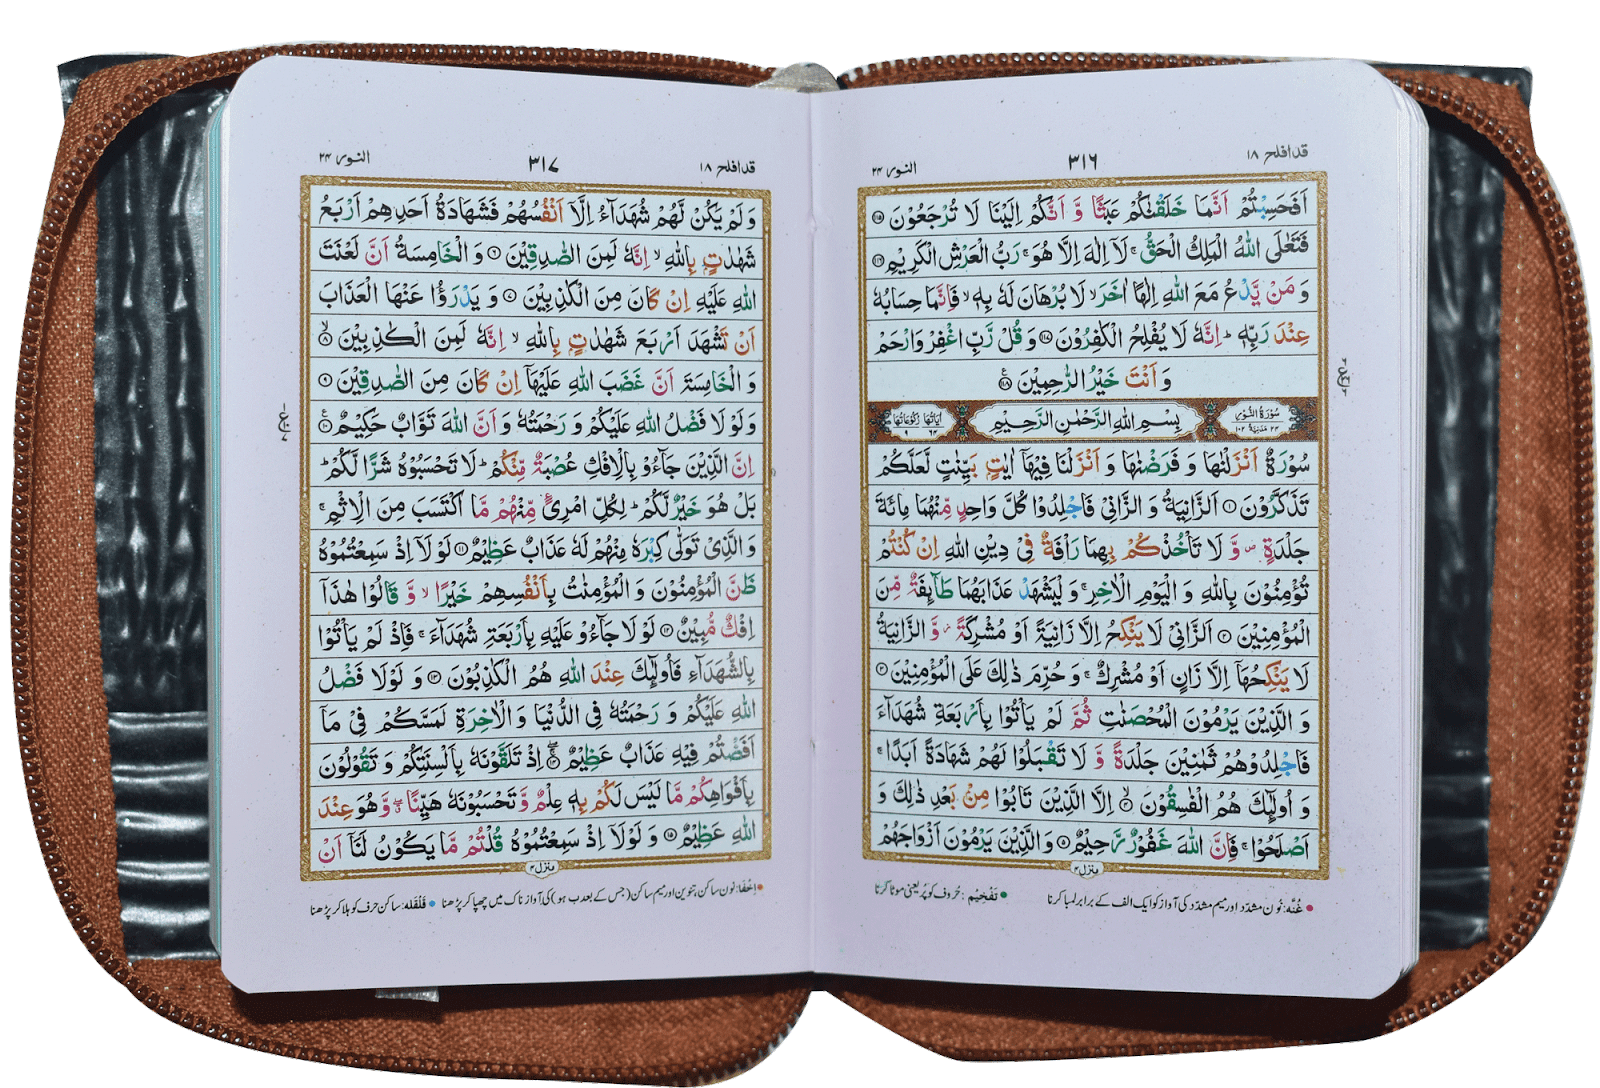 قد افلح ۱۸
۳۱۶
النور ۲۴
اَفَحَسِبْتُمْ اَنَّمَا خَلَقْنٰكُمْ عَبَثًا وَّ اَنَّكُمْ اِلَيْنَا لَا تُرْجَعُوْنَ ۝۱۱۵
فَتَعٰلَى اللّٰهُ الْمَلِكُ الْحَقُّ ۚ لَاۤ اِلٰهَ اِلَّا هُوَ ۚ رَبُّ الْعَرْشِ الْكَرِيْمِ ۝۱۱۶
وَ مَنْ يَّدْعُ مَعَ اللّٰهِ اِلٰهًا اٰخَرَ ۙ لَا بُرْهَانَ لَهٗ بِهٖ ۙ فَاِنَّمَا حِسَابُهٗ
عِنْدَ رَبِّهٖ ؕ اِنَّهٗ لَا يُفْلِحُ الْكٰفِرُوْنَ ۝۱۱۷ وَ قُلْ رَّبِّ اغْفِرْ وَارْحَمْ
وَ اَنْتَ خَيْرُ الرّٰحِمِيْنَ ۝۱۱۸
سُوْرَةُ النُّوْرِ ۲۴ مَدَنِيَّةٌ ۱۰۲
بِسْمِ اللّٰهِ الرَّحْمٰنِ الرَّحِيْمِ
اٰيَاتُهَا ۶۴ رُكُوْعَاتُهَا ۹
سُوْرَةٌ اَنْزَلْنٰهَا وَ فَرَضْنٰهَا وَ اَنْزَلْنَا فِيْهَاۤ اٰيٰتٍۭ بَيِّنٰتٍ لَّعَلَّكُمْ
تَذَكَّرُوْنَ ۝۱ اَلزَّانِيَةُ وَ الزَّانِيْ فَاجْلِدُوْا كُلَّ وَاحِدٍ مِّنْهُمَا مِائَةَ
جَلْدَةٍ ۪ وَّ لَا تَاْخُذْكُمْ بِهِمَا رَاْفَةٌ فِيْ دِيْنِ اللّٰهِ اِنْ كُنْتُمْ
تُؤْمِنُوْنَ بِاللّٰهِ وَ الْيَوْمِ الْاٰخِرِ ۚ وَ لْيَشْهَدْ عَذَابَهُمَا طَآئِفَةٌ مِّنَ
الْمُؤْمِنِيْنَ ۝۲ اَلزَّانِيْ لَا يَنْكِحُ اِلَّا زَانِيَةً اَوْ مُشْرِكَةً ؗ وَّ الزَّانِيَةُ
لَا يَنْكِحُهَاۤ اِلَّا زَانٍ اَوْ مُشْرِكٌ ۚ وَ حُرِّمَ ذٰلِكَ عَلَى الْمُؤْمِنِيْنَ ۝۳
وَ الَّذِيْنَ يَرْمُوْنَ الْمُحْصَنٰتِ ثُمَّ لَمْ يَاْتُوْا بِاَرْبَعَةِ شُهَدَآءَ
فَاجْلِدُوْهُمْ ثَمٰنِيْنَ جَلْدَةً وَّ لَا تَقْبَلُوْا لَهُمْ شَهَادَةً اَبَدًا ۚ
وَ اُولٰٓئِكَ هُمُ الْفٰسِقُوْنَ ۝۴ اِلَّا الَّذِيْنَ تَابُوْا مِنْۢ بَعْدِ ذٰلِكَ وَ
اَصْلَحُوْا ۚ فَاِنَّ اللّٰهَ غَفُوْرٌ رَّحِيْمٌ ۝۵ وَ الَّذِيْنَ يَرْمُوْنَ اَزْوَاجَهُمْ
منزل ۴
غُنّہ: نون مشدّد اور میم مشدّد کی آواز کو ایک الف کے برابر لمبا کرنا تَفْخِیْم: حروف کو پُر یعنی موٹا کرنا
قد افلح ۱۸
۳۱۷
النور ۲۴
وَ لَمْ يَكُنْ لَّهُمْ شُهَدَآءُ اِلَّاۤ اَنْفُسُهُمْ فَشَهَادَةُ اَحَدِهِمْ اَرْبَعُ
شَهٰدٰتٍۭ بِاللّٰهِ ۙ اِنَّهٗ لَمِنَ الصّٰدِقِيْنَ ۝۶ وَ الْخَامِسَةُ اَنَّ لَعْنَتَ
اللّٰهِ عَلَيْهِ اِنْ كَانَ مِنَ الْكٰذِبِيْنَ ۝۷ وَ يَدْرَؤُا عَنْهَا الْعَذَابَ
اَنْ تَشْهَدَ اَرْبَعَ شَهٰدٰتٍۭ بِاللّٰهِ ۙ اِنَّهٗ لَمِنَ الْكٰذِبِيْنَ ۝۸ۙ
وَ الْخَامِسَةَ اَنَّ غَضَبَ اللّٰهِ عَلَيْهَاۤ اِنْ كَانَ مِنَ الصّٰدِقِيْنَ ۝۹
وَ لَوْ لَا فَضْلُ اللّٰهِ عَلَيْكُمْ وَ رَحْمَتُهٗ وَ اَنَّ اللّٰهَ تَوَّابٌ حَكِيْمٌ ۝۱۰
اِنَّ الَّذِيْنَ جَآءُوْ بِالْاِفْكِ عُصْبَةٌ مِّنْكُمْ ؕ لَا تَحْسَبُوْهُ شَرًّا لَّكُمْ ؕ
بَلْ هُوَ خَيْرٌ لَّكُمْ ؕ لِكُلِّ امْرِئٍ مِّنْهُمْ مَّا اكْتَسَبَ مِنَ الْاِثْمِ ۚ
وَ الَّذِيْ تَوَلّٰى كِبْرَهٗ مِنْهُمْ لَهٗ عَذَابٌ عَظِيْمٌ ۝۱۱ لَوْ لَاۤ اِذْ سَمِعْتُمُوْهُ
ظَنَّ الْمُؤْمِنُوْنَ وَ الْمُؤْمِنٰتُ بِاَنْفُسِهِمْ خَيْرًا ۙ وَّ قَالُوْا هٰذَاۤ
اِفْكٌ مُّبِيْنٌ ۝۱۲ لَوْ لَا جَآءُوْ عَلَيْهِ بِاَرْبَعَةِ شُهَدَآءَ ۚ فَاِذْ لَمْ يَاْتُوْا
بِالشُّهَدَآءِ فَاُولٰٓئِكَ عِنْدَ اللّٰهِ هُمُ الْكٰذِبُوْنَ ۝۱۳ وَ لَوْ لَا فَضْلُ
اللّٰهِ عَلَيْكُمْ وَ رَحْمَتُهٗ فِي الدُّنْيَا وَ الْاٰخِرَةِ لَمَسَّكُمْ فِيْ مَاۤ
اَفَضْتُمْ فِيْهِ عَذَابٌ عَظِيْمٌ ۝۱۴ اِذْ تَلَقَّوْنَهٗ بِاَلْسِنَتِكُمْ وَ تَقُوْلُوْنَ
بِاَفْوَاهِكُمْ مَّا لَيْسَ لَكُمْ بِهٖ عِلْمٌ وَّ تَحْسَبُوْنَهٗ هَيِّنًا ۖۗ وَّ هُوَ عِنْدَ
اللّٰهِ عَظِيْمٌ ۝۱۵ وَ لَوْ لَاۤ اِذْ سَمِعْتُمُوْهُ قُلْتُمْ مَّا يَكُوْنُ لَنَاۤ اَنْ
منزل ۴
اِخفا: نون ساکن، تنوین اور میم ساکن (جس کے بعد ب ہو) کی آواز ناک میں چھپا کر پڑھنا قلقلہ: ساکن حرف کو ہلا کر پڑھنا